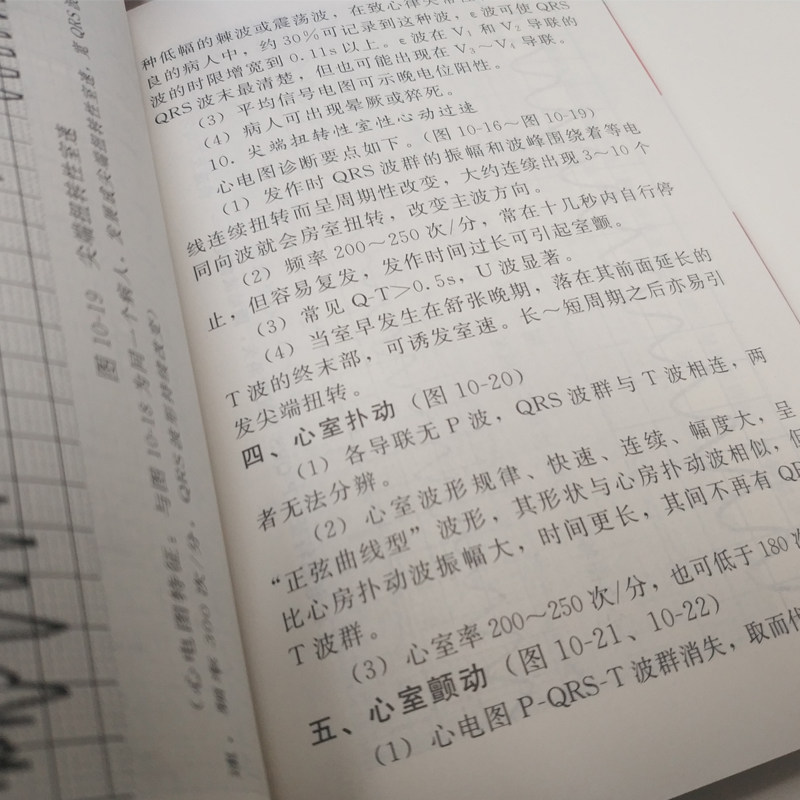 种低幅的棘波或震荡波，在致心律失常
良的病人中，约30%可记录到这种波，ε波可使QRS
波的时限增宽到0.11s以上。ε波在V₁和V₂导联的
QRS波末最清楚，但也可能出现在V₃～V₄导联。
（3）平均信号电图可示晚电位阳性。
（4）病人可出现晕厥或猝死。
10．尖端扭转性室性心动过速
心电图诊断要点如下。（图10-16～图10-19）
（1）发作时QRS波群的振幅和波峰围绕着等电
线连续扭转而呈周期性改变，大约连续出现3～10个
同向波就会房室扭转，改变主波方向。
（2）频率200～250次/分，常在十几秒内自行停
止，但容易复发，发作时间过长可引起室颤。
（3）常见Q-T＞0.5s，U波显著。
（4）当室早发生在舒张晚期，落在其前面延长的
T波的终末部，可诱发室速。长～短周期之后亦易引
发尖端扭转。
四、心室扑动（图10-20）
（1）各导联无P波，QRS波群与T波相连，两
者无法分辨。
（2）心室波形规律、快速、连续、幅度大，呈
“正弦曲线型”波形，其形状与心房扑动波相似，但
比心房扑动波振幅大，时间更长，其间不再有QR
T波群。
（3）心室率200～250次/分，也可低于180次
五、心室颤动（图10-21、10-22）
（1）心电图P-QRS-T波群消失，取而代
图10-19 尖端扭转性室速
（心电图特征：与图10-18为同一个病人，
频率300次/分，QRS波形持续改变）